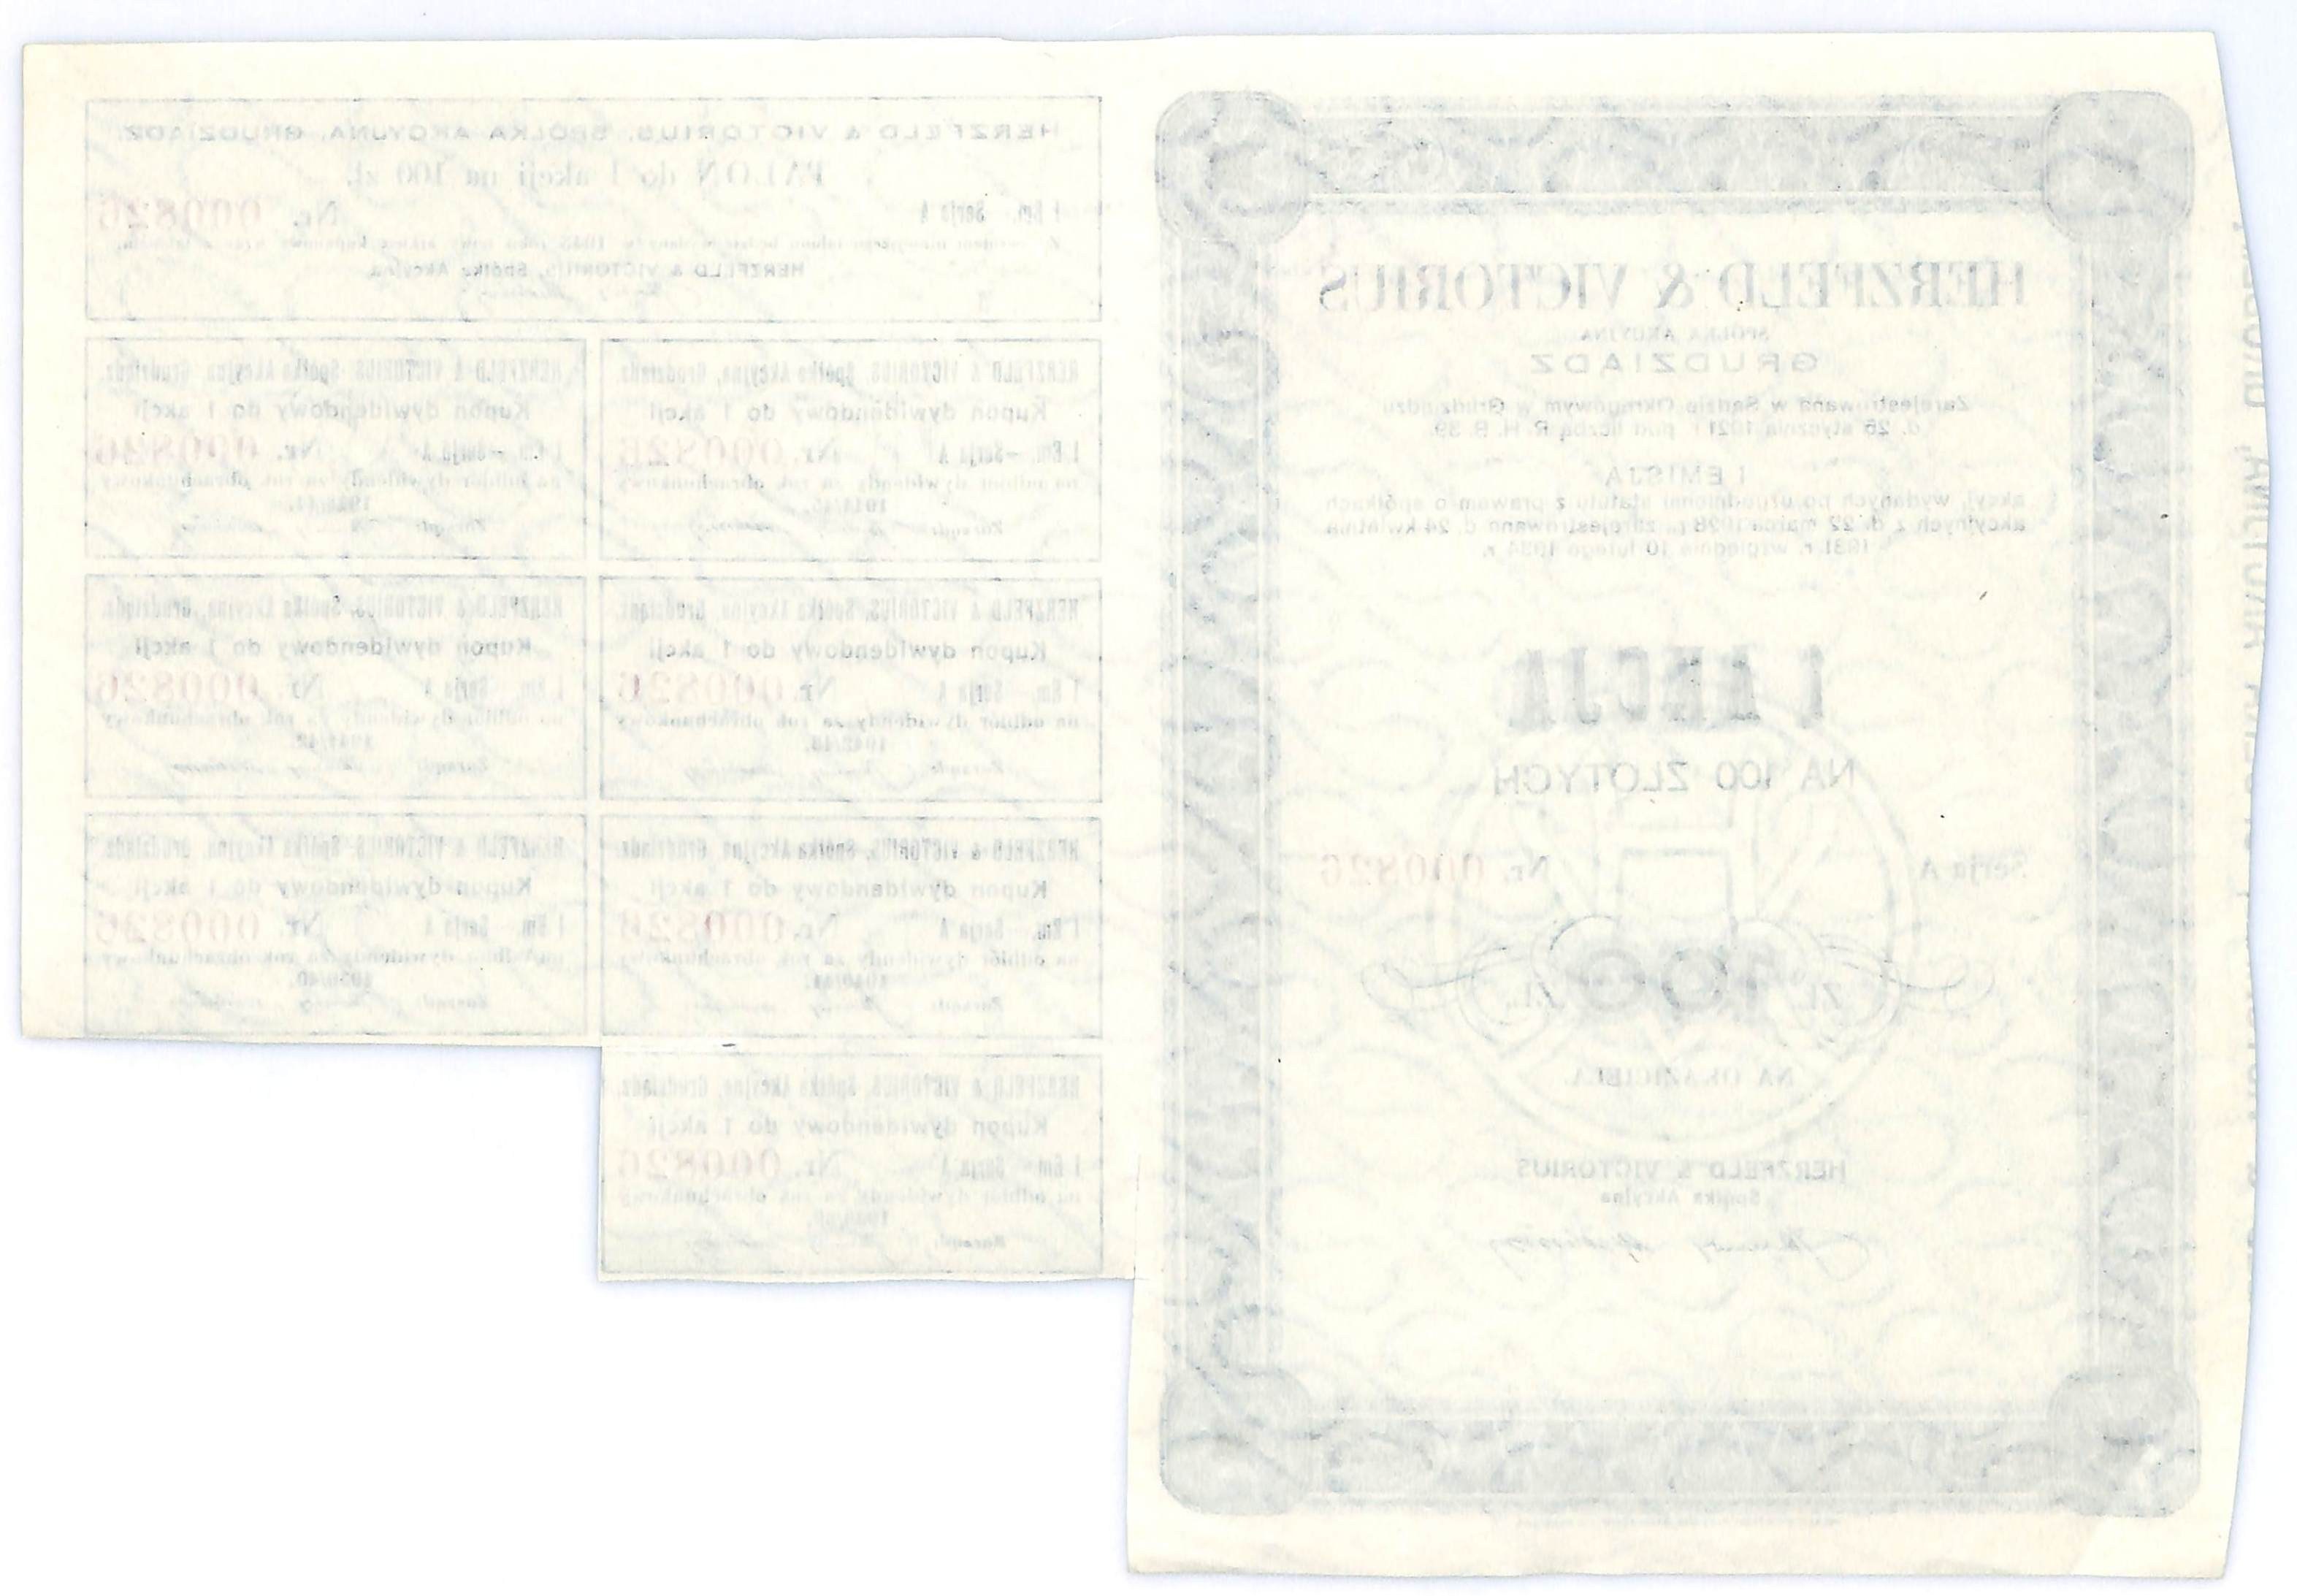 HERZFELD & VICTORIUS
SPÓŁKA AKCYJNA
GRUDZIĄDZ
Zarejestrowana w Sądzie Okręgowym w Grudziądzu
d. 26 stycznia 1921 r. pod liczbą R. H. B. 39.
I EMISJA
akcyj, wydanych po uzgodnieniu statutu z prawem o spółkach
akcyjnych z d. 22 marca 1928 r., zarejestrowano d. 24 kwietnia
1931 r. względnie 10 lutego 1934 r.
1 AKCJA
NA 100 ZŁOTYCH
Serja A Nr. 000826
ZŁ. 100 ZŁ.
NA OKAZICIELA.
HERZFELD & VICTORIUS
Spółka Akcyjna
HERZFELD & VICTORIUS, SPÓŁKA AKCYJNA, GRUDZIĄDZ.
TALON do 1 akcji na 100 zł.
I Em. Serja A Nr. 000826
HERZFELD & VICTORIUS, Spółka Akcyjna
HERZFELD & VICTORIUS, Spółka Akcyjna, Grudziądz.
Kupon dywidendowy do 1 akcji
I Em. — Serja A Nr. 000826
na odbiór dywidendy za rok obrachunkowy
1944/45.
Zarząd:
HERZFELD & VICTORIUS, Spółka Akcyjna, Grudziądz.
Kupon dywidendowy do 1 akcji
I Em. — Serja A Nr. 000826
na odbiór dywidendy za rok obrachunkowy
Zarząd:
HERZFELD & VICTORIUS, Spółka Akcyjna, Grudziądz.
Kupon dywidendowy do 1 akcji
I Em. — Serja A Nr. 000826
na odbiór dywidendy za rok obrachunkowy
1942/43.
Zarząd:
HERZFELD & VICTORIUS, Spółka Akcyjna, Grudziądz.
Kupon dywidendowy do 1 akcji
I Em. Serja A Nr. 000826
na odbiór dywidendy za rok obrachunkowy
1941/42.
Zarząd:
HERZFELD & VICTORIUS, Spółka Akcyjna, Grudziądz.
Kupon dywidendowy do 1 akcji
I Em. — Serja A Nr. 000826
na odbiór dywidendy za rok obrachunkowy
1940/41.
Zarząd:
HERZFELD & VICTORIUS, Spółka Akcyjna, Grudziądz.
Kupon dywidendowy do 1 akcji
I Em. Serja A Nr. 000826
na odbiór dywidendy za rok obrachunkowy
1939/40.
Zarząd:
HERZFELD & VICTORIUS, Spółka Akcyjna, Grudziądz.
Kupon dywidendowy do 1 akcji
I Em. — Serja A Nr. 000826
na odbiór dywidendy za rok obrachunkowy
Zarząd: